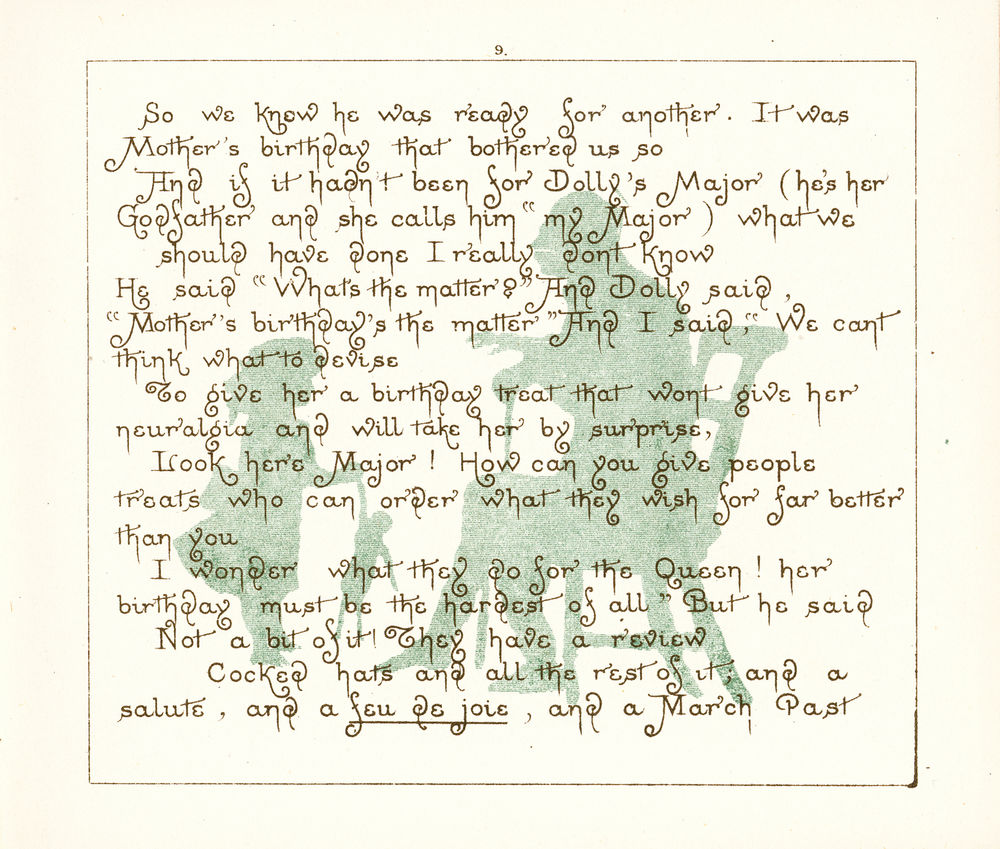 9.
So we knew he was ready for another. It was
Mother's birthday that bothered us so
And if it hadn't been for Dolly's Major (he's her
Godfather and she calls him "my Major) what we
should have done I really dont know
He said "What's the matter?" And Dolly said,
"Mother's birthday's the matter" And I said, "We cant
think what to devise
To give her a birthday treat that wont give her
neuralgia and will take her by surprise,
Look here Major! How can you give people
treats who can order what they wish for far better
than you
I wonder what they do for the Queen! her
birthday must be the hardest of all" But he said
Not a bit of it! They have a review
Cocked hats and all the rest of it; and a
salute, and a feu de joie, and a March Past